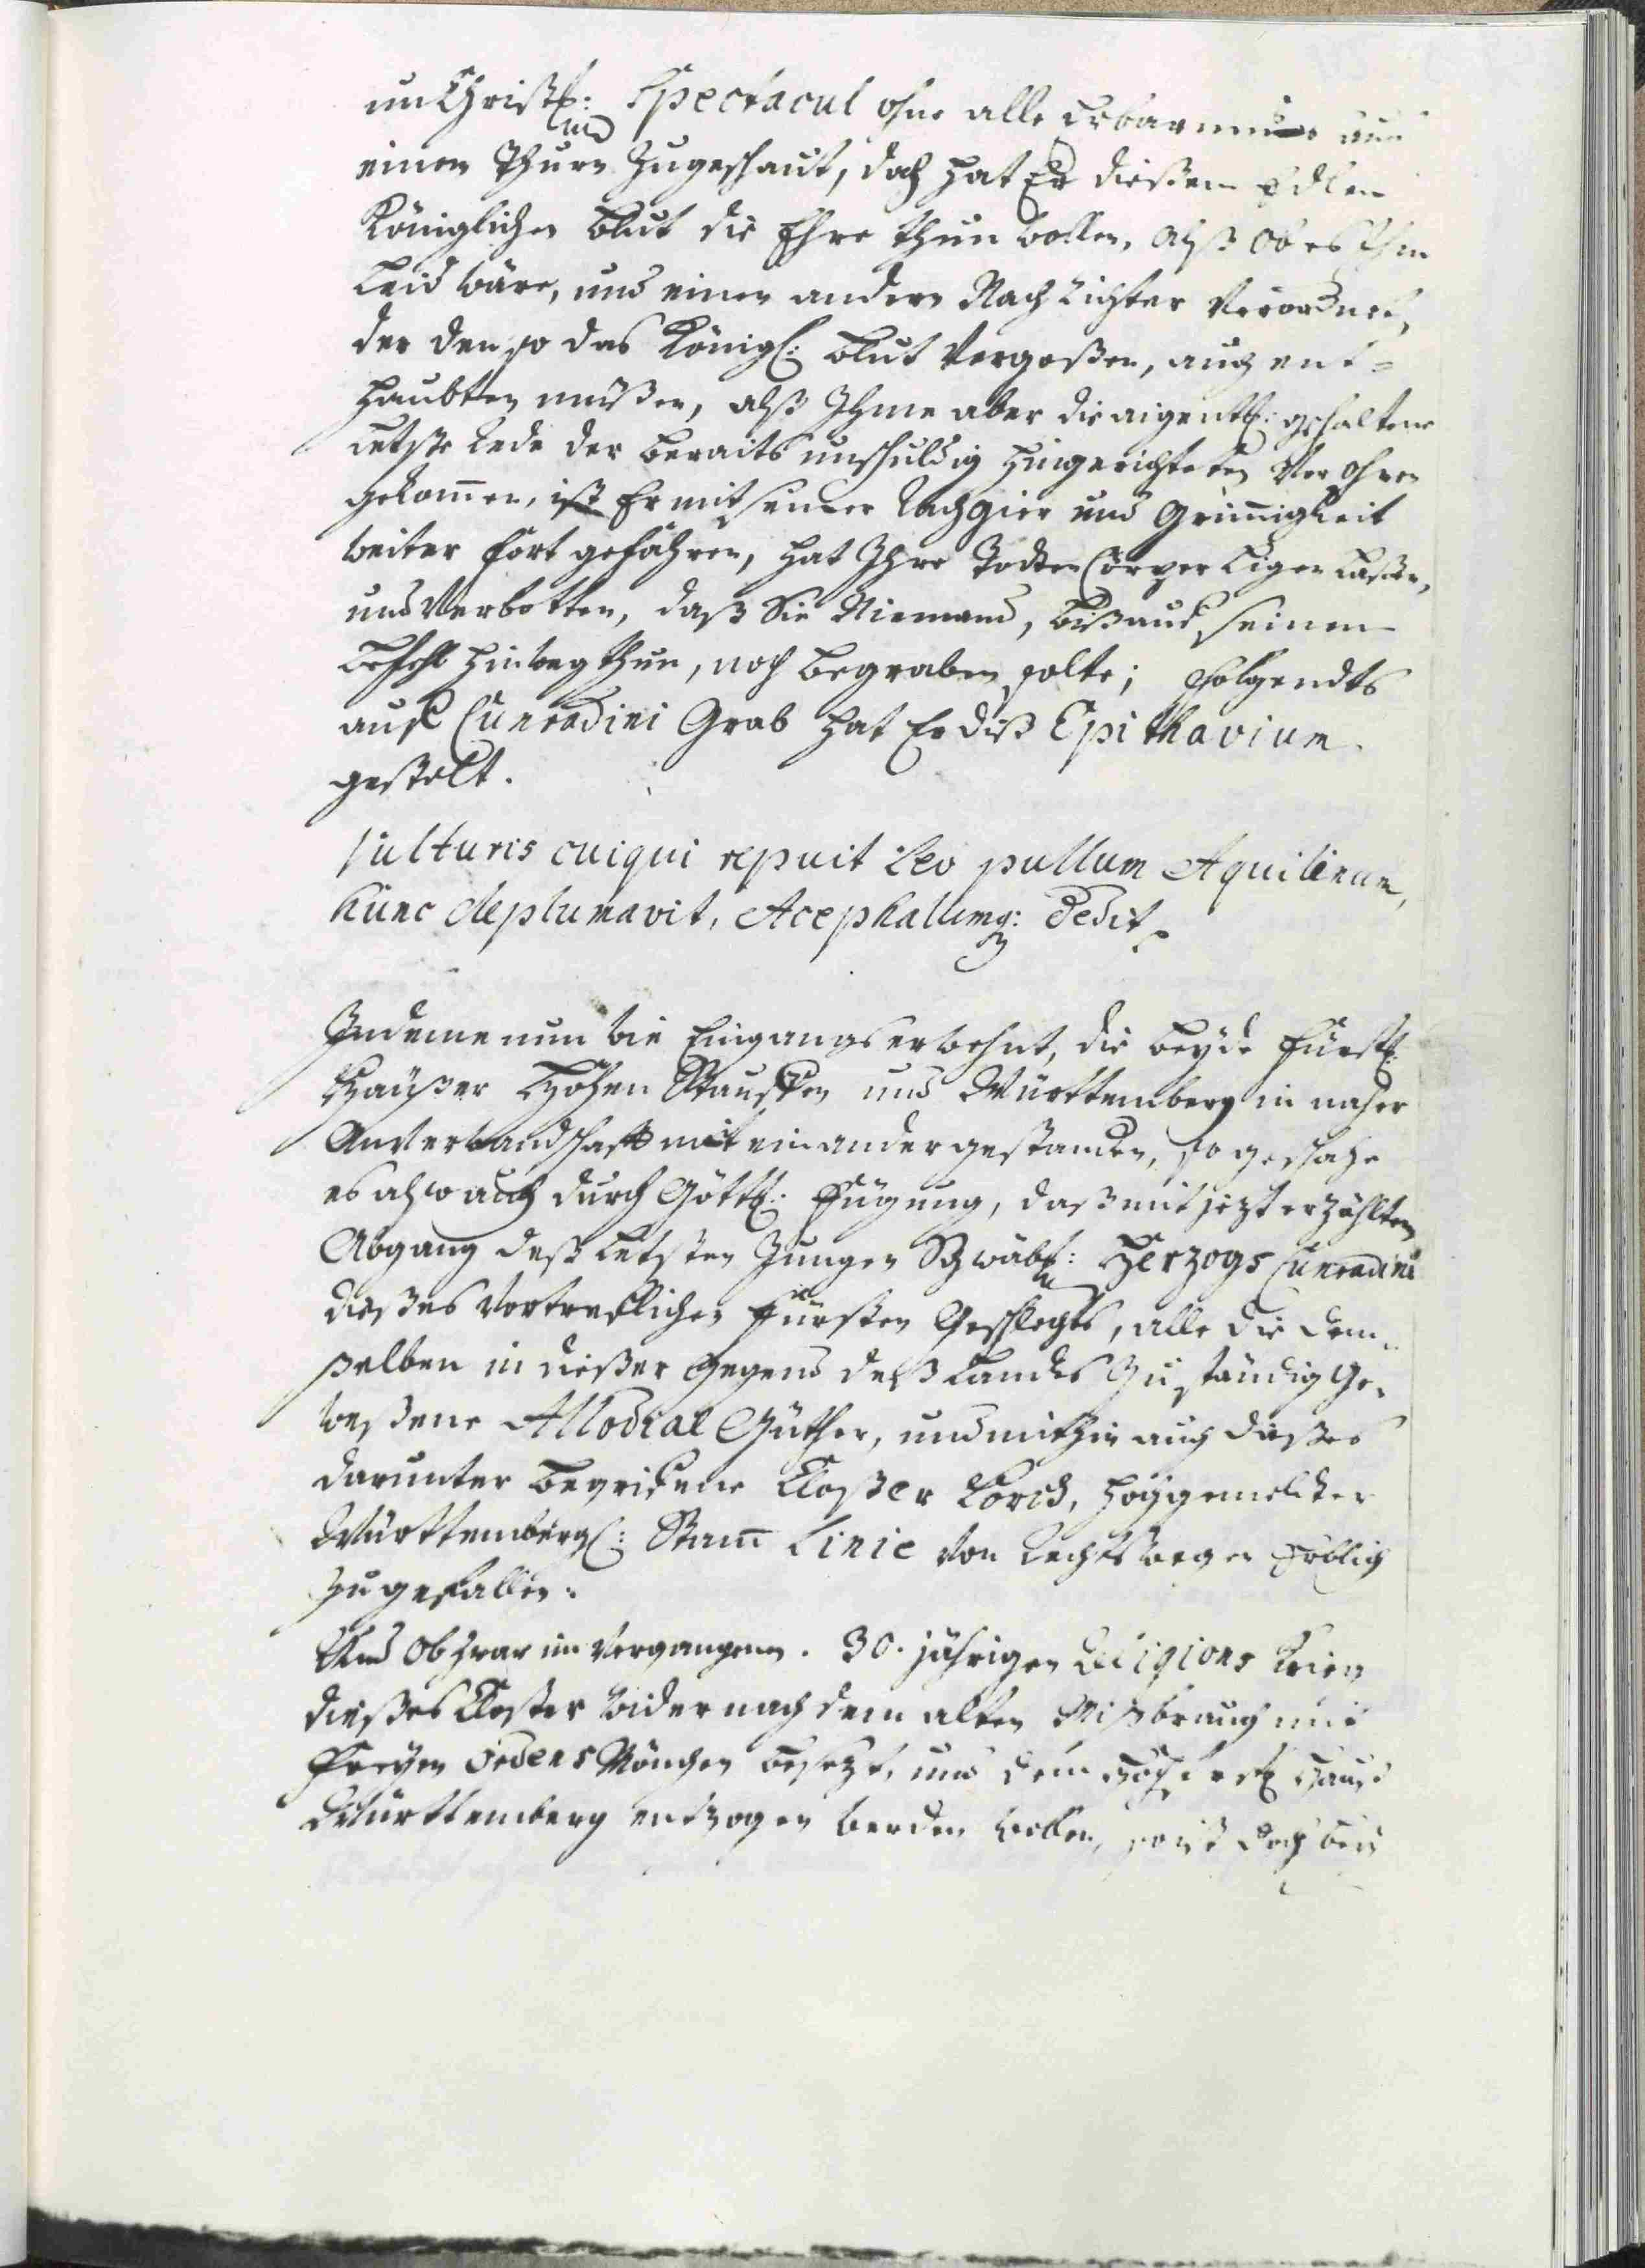 unChristl: Spectacul ohne alle Erbarmnus aus
einen Thurn zugeschaut, doch hat Er dießem Edlen
Königlichen Blut die Ehre thun wollen, alß ob es Ihm
Leid wäre, und einen andern Nach Richter Verordnet,
der den so das Königl: Blut Vergoßen, auch ent-
haubten müßen, alß Ihme aber die aigentl: gehaltene
Letste Rede der Beraits unschuldig hingerichteten Vor Ohren
gekom̄en, ist Er mit seiner Rachgier und Grim̄igkeit
weiter fort gefahren, hat Ihre Todten Cörper Ligen Laßen,
und Verbotten, daß Sie Niemand, biß auf seinen
Befehl hinweg thun, noch Begraben solte; Folgendts
auf Cunradini Grab hat Er diß Epithavium
gestelt.
Vulturis cuiqui repuit Leo pullum Aquilinum,
hunc deplumavit, Acephalumq: dedit.
Indeme nun wie Eingangs erwehnt, die beyde Fürstl:
Häußer Hohen Stauffen und Württemberg in naher
Anverwandschafft mit einander gestanden, so geschahe
es also auch durch Göttl: Fügung, daß mit jezt erzählten
Abgang deß Letsten Jungen Schwäb: Herzogs Cunradini
dießes Vortrefflichen Fürsten Geschlechts, alle die dem-
selben in dießer Gegend deß Landes Zuständig ge-
weßene Allodial Güther, und mithin auch dießes
darunter begriffene Closter Lorch, hochgemelter
Württembergl: Stam̄ Linie Von Rechts wegen Erblich
zugefallen.
Und Ob zwar im Vergangenen 30. jährigen Religions Krieg
dießes Closter wider nach dem alten Mißbrauch mit
Ordens Mönchen besezt, und dem Hauß
Württemberg entzogen werden wollen, so ist doch